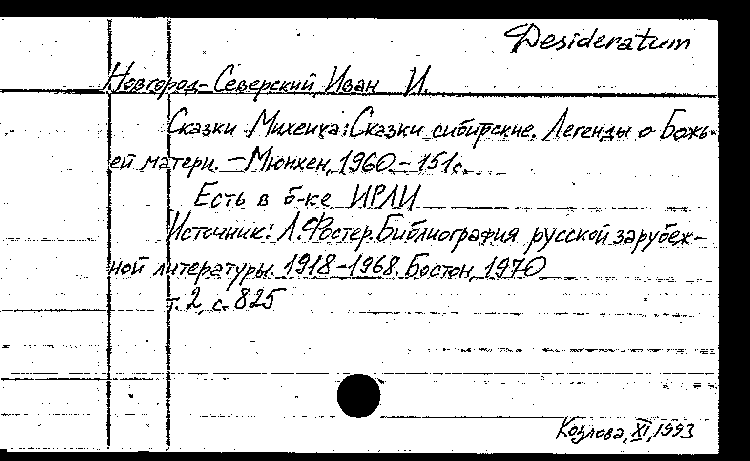 Desideratum
Новгород-Северский, Иван И.
Сказки Михеича: Сказки сибирские. Легенды о Божь-
ей матери. – Мюнхен, 1960. – 151с.
Есть в б-ке ИРЛИ
Источник: Л. Фостер. Библиография русской зарубеж-
ной литературы. 1918-1968. Бостон, 1970
т. 2, с. 825
Козлова, XI, 1993